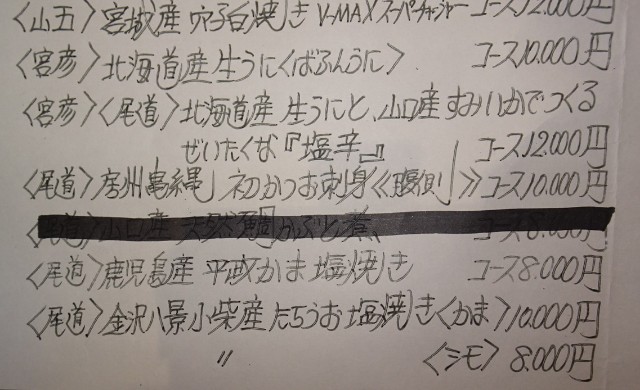 〈山五〉宮城産 穴子白焼き V-MAXスーパーチャージャー コース12.000円
〈宮彦〉北海道産生うに〈ばふんうに〉 コース10.000円
〈宮彦〉〈尾道〉北海道産生うにと、山口産すみいかでつくる
ぜいたくな『塩辛』 コース12.000円
〈尾道〉房州亀縄 初かつお刺身《腹側》 コース10.000円
〈尾道〉山口産 天然 鯛かぶと煮 コース8.000円
〈尾道〉鹿児島産 平政かま塩焼き コース8.000円
〈尾道〉金沢八景小柴産たちうお塩焼き〈かま〉10.000円
〃 〈シモ〉8.000円